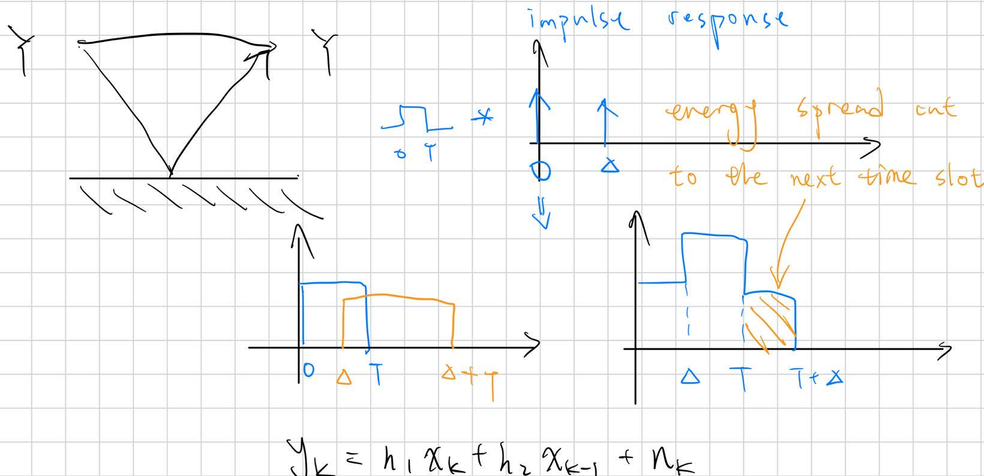 impulse response
energy spread out
to the next time slot
0 T
*
0 Δ
0 Δ T Δ+T
Δ T T+Δ
y_k = h_1 x_k + h_2 x_{k-1} + n_k